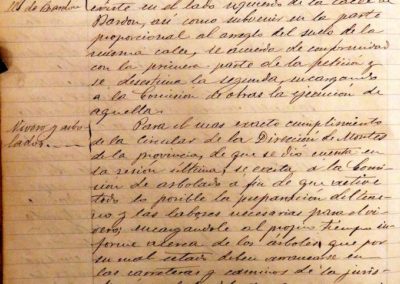 existe en el lado izquierdo de la calle de
Bardon, así como subvenir en la parte
proporcional al arreglo del suelo de la
misma calle, se acuerda de conformidad
con la primera parte de la peticion y
se desestima la segunda, encargando
a la Comision de obras la ejecucion de
aquella.
Vivero y arbo-
lados.
Para el mas exacto cumplimiento
de la circular de la Direccion de Montes
de la provincia, de que se dió cuenta en
la sesion última, se excita, a la Comi-
sion de arbolado a fin de que active
todo lo posible la preparacion del terre-
no y las labores necesarias para el vi-
vero; encargandole al propio tiempo in-
forme acerca de los árboles que por
su mal estado deben arrancarse en
las carreteras y caminos de la juris-